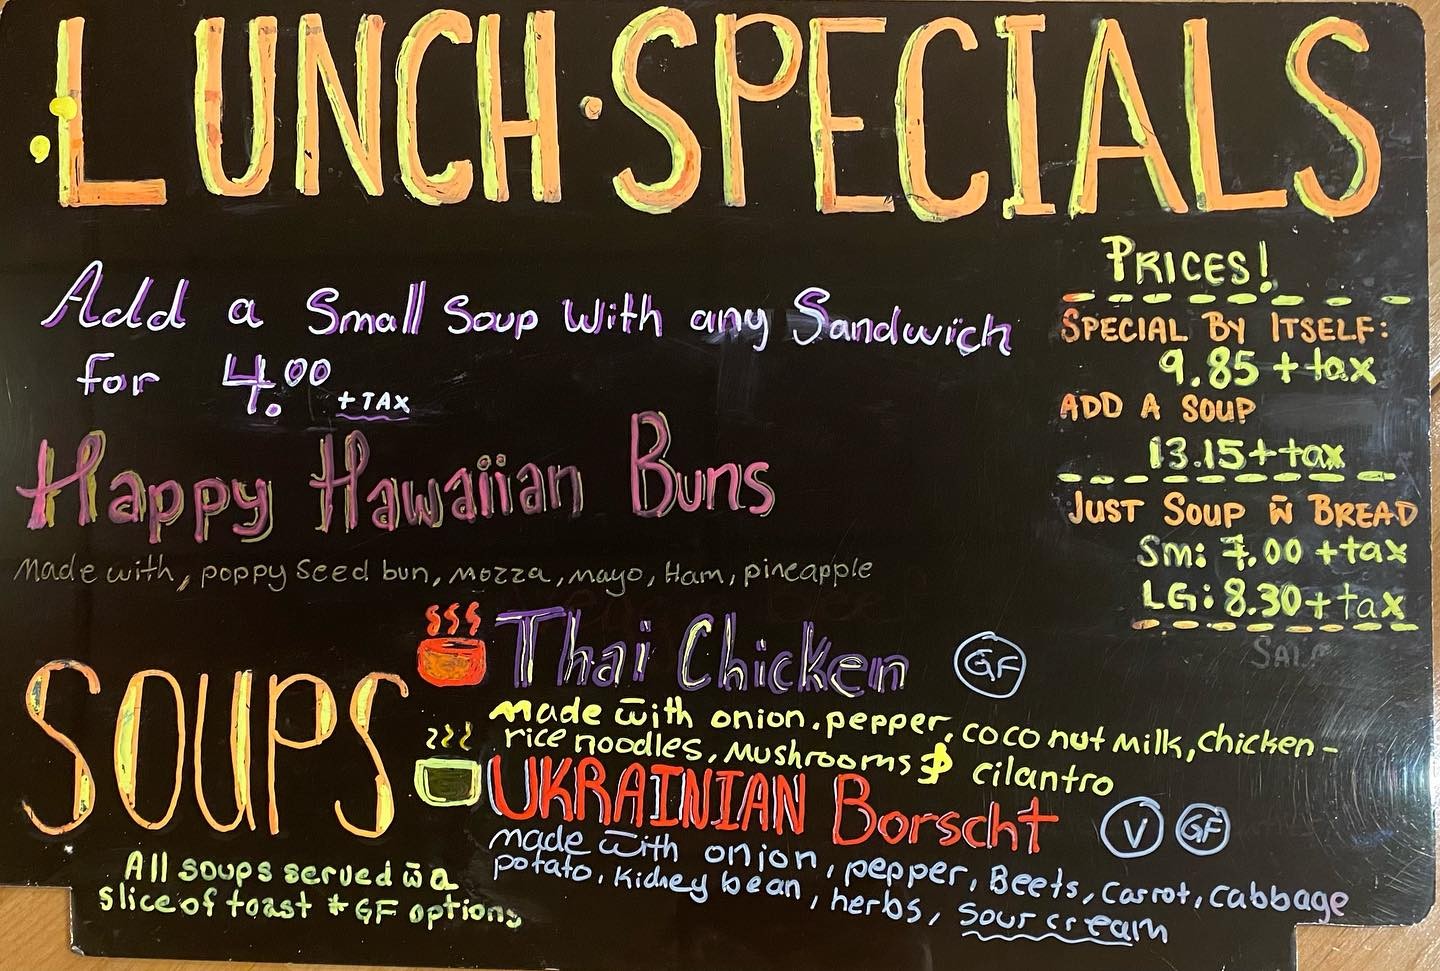 LUNCH · SPECIALS
Add a Small Soup With any Sandwich
for 4.00 + TAX
Happy Hawaiian Buns
Made with, poppy Seed bun, mozza, mayo, Ham, pineapple
PRICES!
SPECIAL BY ITSELF:
9.85 + tax
ADD A SOUP
13.15 + tax
JUST SOUP w̄ BREAD
Sm: 7.00 + tax
LG: 8.30 + tax
SOUPS
All soups served w̄ a
slice of toast * GF options
Thai Chicken GF
Made with onion, pepper, coconut milk, chicken -
rice noodles, Mushrooms & cilantro
UKRAINIAN Borscht V GF
made with onion, pepper, Beets, carrot, cabbage
potato, kidney bean, herbs, sour cream